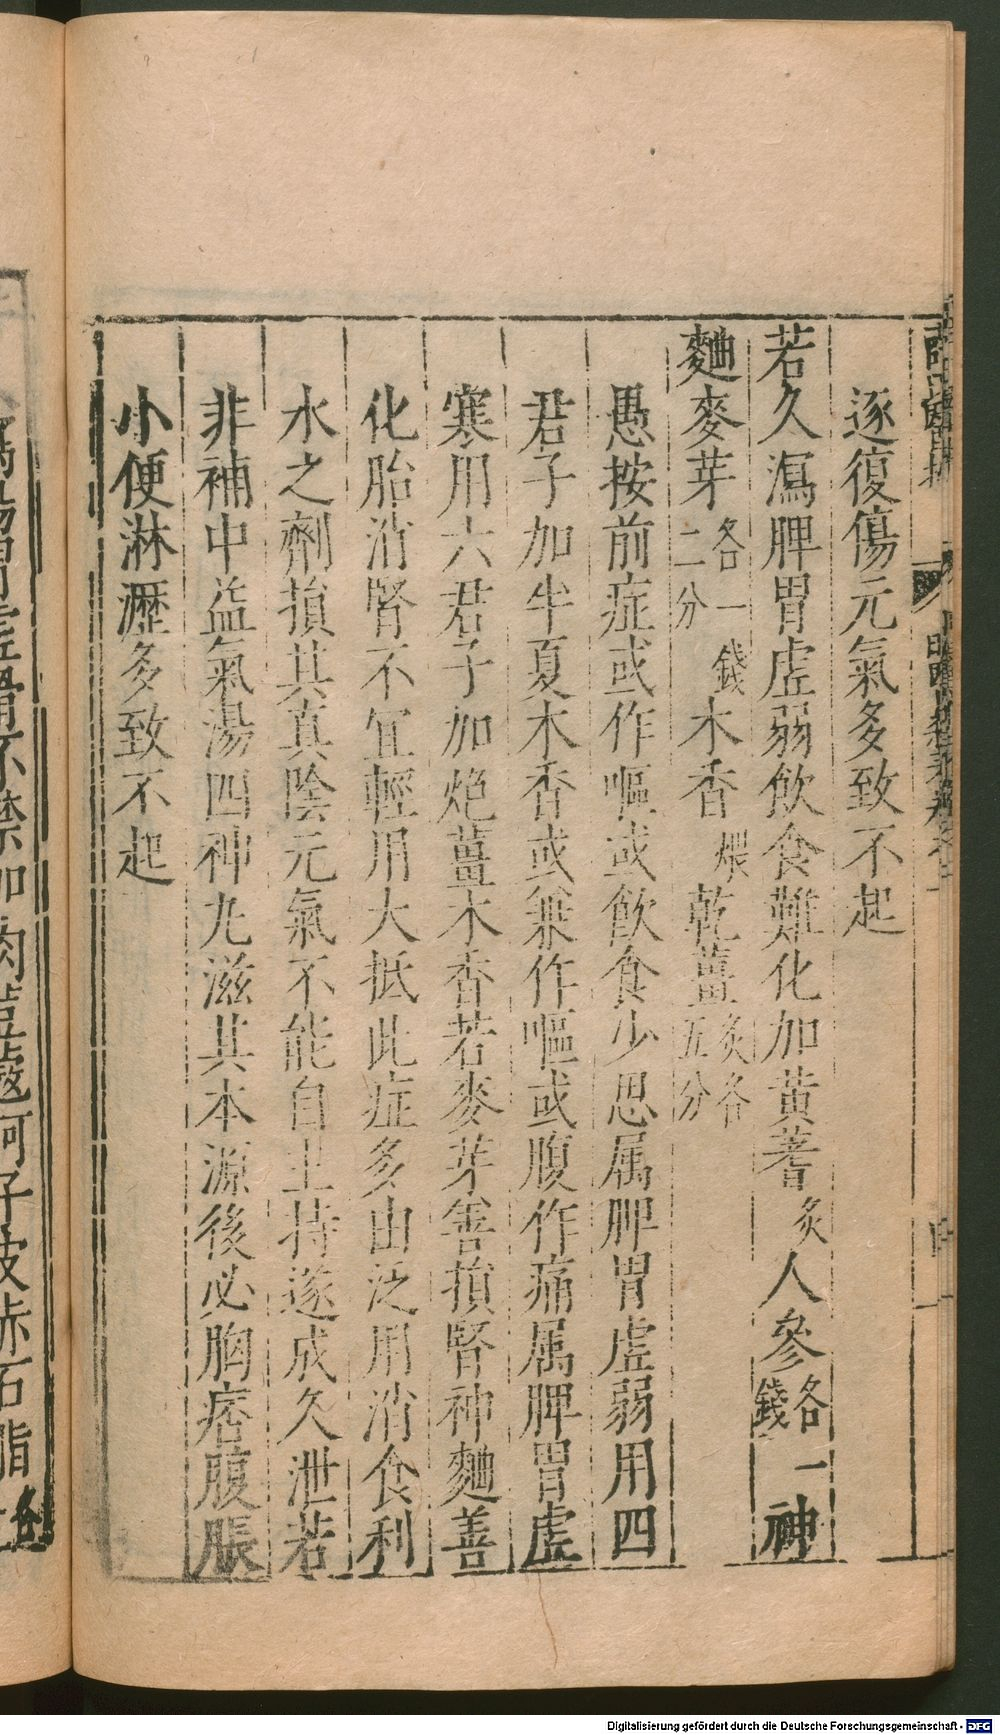 逐復傷元氣多致不起
若久瀉脾胃虛弱飲食難化加黃蓍炙人參各一錢神
麯麥芽各一錢二分木香煨乾薑炙各五分
愚按前症或作嘔或飲食少思属脾胃虛弱用四
君子加半夏木香或兼作嘔或腹作痛属脾胃虛
寒用六君子加炮薑木香若麥芽善損腎神麯善
化胎消腎不宜輕用大抵此症多由泛用消食利
水之劑損其真陰元氣不能自主持遂成久泄若
非補中益氣湯四神丸滋其本源後必胸痞腹脹
小便淋瀝多致不起
虛滑不禁加肉荳蔻訶子皮赤石脂各
Digitalisierung gefördert durch die Deutsche Forschungsgemeinschaft - DFG